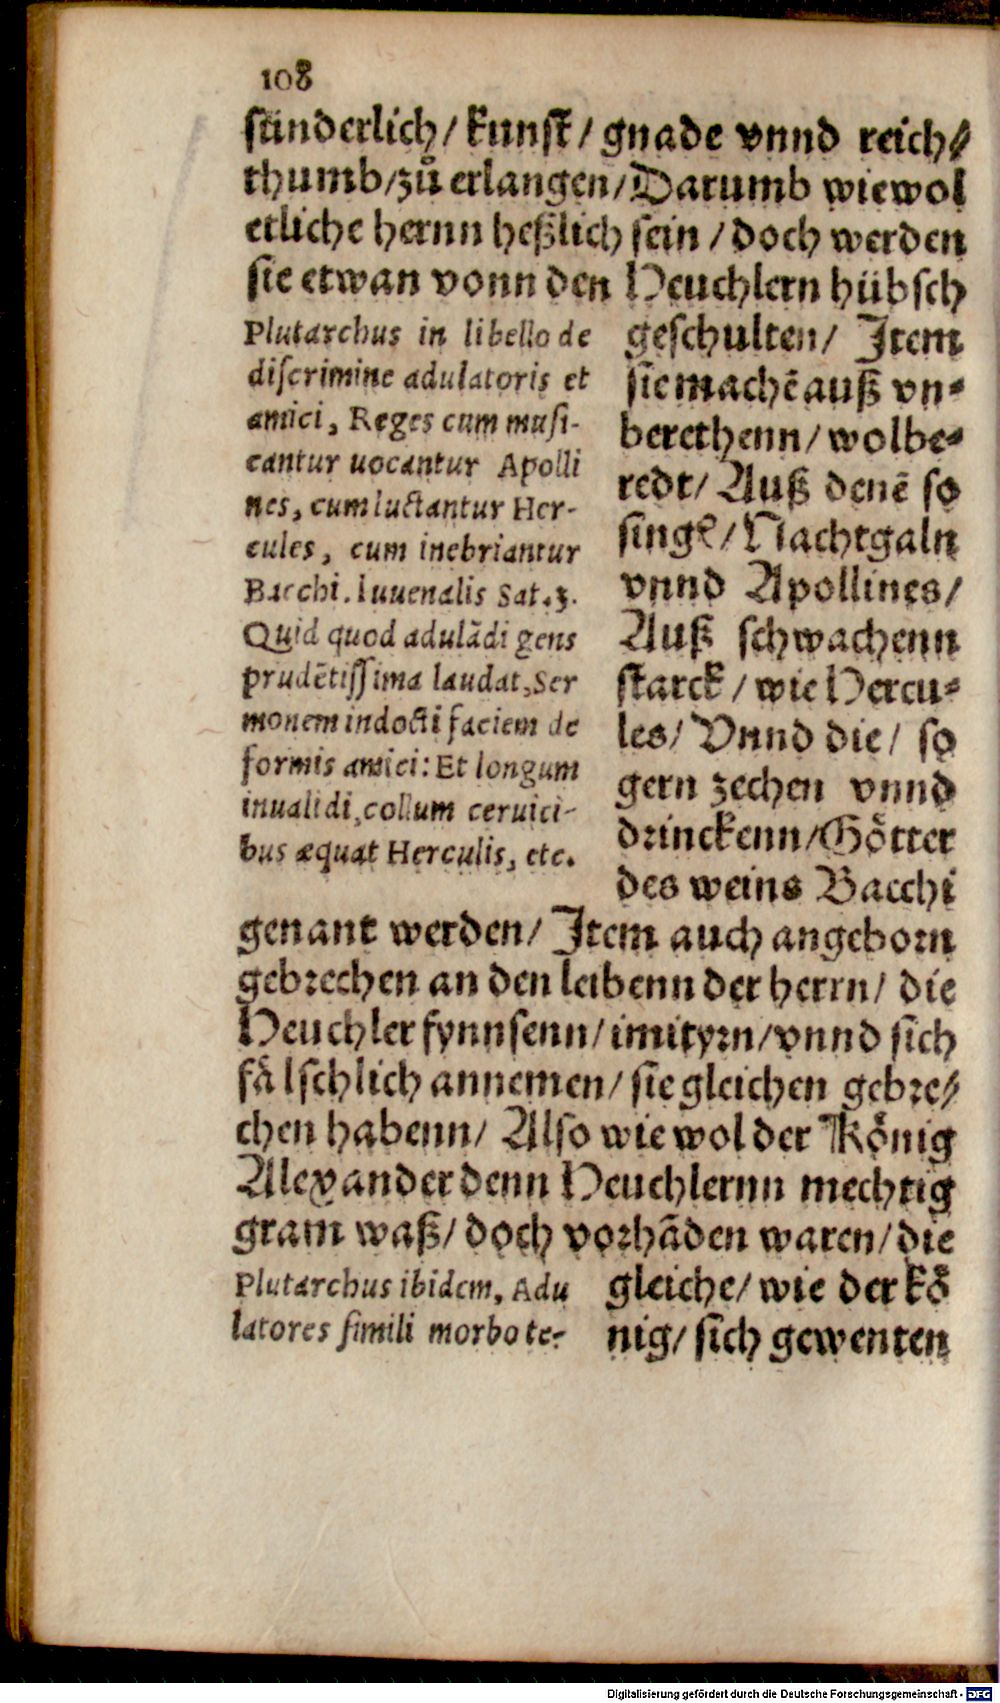 108
sünderlich/ kunst/ gnade vnnd reich⸗
thumb/zů erlangen/Darumb wiewol
etliche hernn heßlich sein / doch werden
sie etwan vonn den Heuchlern hübsch
geschulten/ Item
sie machē auß vn⸗
berethenn/ wolbe⸗
redt/ Auß denē so
singē/ Nachtgaln
vnnd Apollines/
Auß schwachenn
starck / wie Hercu⸗
les/ Vnnd die/ so
gern zechen vnnd
drinckenn/Götter
des weins Bacchi
Plutarchus in libello de
discrimine adulatoris et
amici, Reges cum musi-
cantur uocantur Apolli
nes, cum luctantur Her-
cules, cum inebriantur
Bacchi. Iuuenalis Sat.3.
Quid quod adulādi gens
prudētissima laudat, Ser
monem indocti faciem de
formis amici: Et longum
inualidi, collum ceruici-
bus æquat Herculis, etc.
genant werden/ Item auch angeborn
gebrechen an den leibenn der herrn/ die
Heuchler fynnsenn/ imityrn/ vnnd sich
fälschlich annemen/ sie gleichen gebre⸗
chen habenn/ Also wie wol der König
Alexander denn Heuchlernn mechtig
gram waß/ doch vorhāden waren/ die
gleiche/ wie der kö
nig/ sich gewenten
Plutarchus ibidem, Adu
latores simili morbo te-
Digitalisierung gefördert durch die Deutsche Forschungsgemeinschaft - DFG